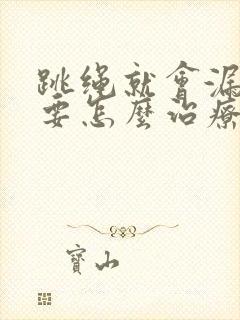 跳繩就會漏
要怎麼治療
寶山